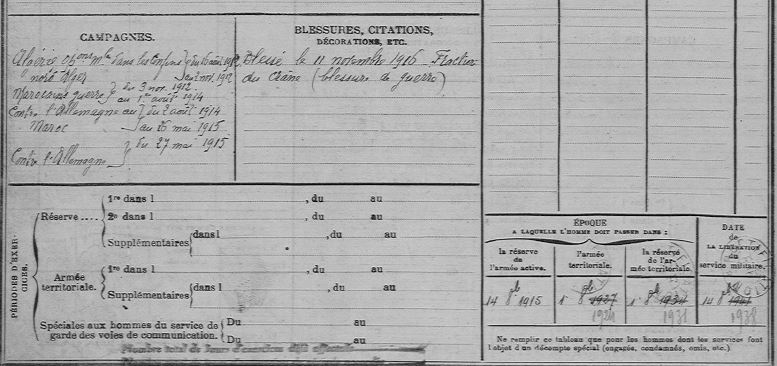 CAMPAGNES.
BLESSURES, CITATIONS,
DÉCORATIONS, ETC.
Algérie op ons m res dans les Confins du 16 août 1912
nord Alger au 2 nov. 1912
Marocains guerre du 3 nov. 1912
au 1er août 1914
Contre l'Allemagne au du 2 août 1914
Maroc au 26 mai 1915
du 27 mai 1915
Contre l'Allemagne
Blessé le 11 novembre 1916 - Fracture
du Crâne (blessure de guerre)
PÉRIODES D'EXERCICES.
Réserve .... 1re dans l , du au
2e dans l , du au
Supplémentaires dans l , du au
, du au
Armée
territoriale. 1re dans l , du au
Supplémentaires dans l , du au
Spéciales aux hommes du service de Du au
garde des voies de communication. Du au
ÉPOQUE
A LAQUELLE L'HOMME DOIT PASSER DANS :
la réserve
de
l'armée active.
l'armée
territoriale.
la réserve
de l'ar-
mée territoriale.
DATE
de
LA LIBÉRATION
du
service militaire.
14 8b 1915
1er 8b 1927
1er 8b 1934
14 8b 1941
1924
1931
1938
Ne remplir ce tableau que pour les hommes dont les services font
l'objet d'un décompte spécial (engagés, condamnés, omis, etc.)